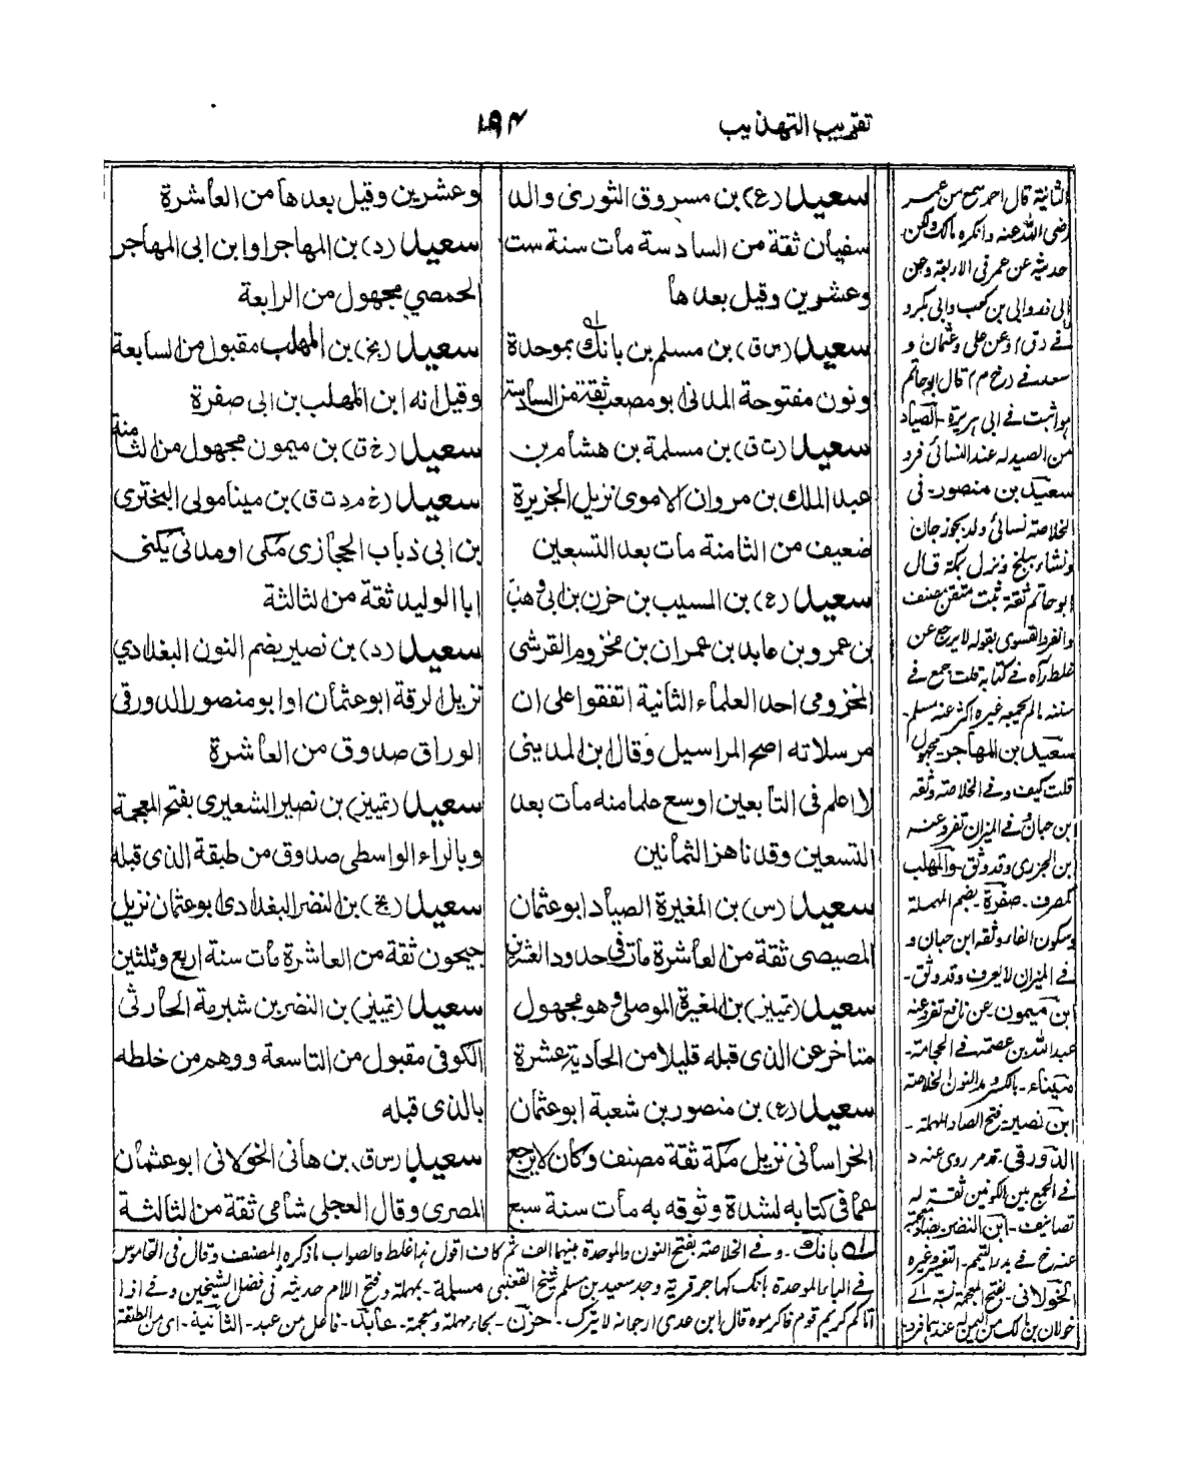 تقريب التهذيب
١٩٤
سعيد (ع) بن مسروق الثورى والد
سفيان ثقة من السادسة مات سنة ست
وعشرين وقيل بعدها
سعيد (س ق) بن مسلم بن بانك بموحدة
ونون مفتوحة المدنى ابو مصعب ثقة من السادسة
سعيد (ت ق) بن مسلمة بن هشام بن
عبد الملك بن مروان الاموى نزيل الجزيرة
ضعيف من الثامنة مات بعد التسعين
سعيد (ع) بن المسيب بن حزن بن ابى وهب
بن عمرو بن عابد بن عمران بن مخزوم القرشى
المخزومى احد العلماء الثانية اتفقوا على ان
مرسلاته اصح المراسيل وقال ابن المدينى
لا اعلم فى التابعين اوسع علما منه مات بعد
التسعين وقد ناهز الثمانين
سعيد (س) بن المغيرة الصياد ابو عثمان
المصيصى ثقة من العاشرة مات فى حدود العشرين
سعيد (تمييز) بن المغيرة الموصلى وهو مجهول
متاخر عن الذى قبله قليلا من الحادية عشرة
سعيد (ع) بن منصور بن شعبة ابو عثمان
الخراسانى نزيل مكة ثقة مصنف وكان لا يرجع
عما فى كتابه لشدة وثوقه به مات سنة سبع
وعشرين وقيل بعدها من العاشرة
سعيد (د) بن المهاجر او ابن ابى المهاجر
الحمصي مجهول من الرابعة
سعيد (بخ) بن المهلب مقبول من السابعة
وقيل انه ابن المهلب بن ابى صفرة
سعيد (خ ق) بن ميمون مجهول من الثامنة
سعيد (خ م د ت ق) بن مينا مولى البخترى
بن ابى ذباب الحجازى مكى او مدنى يكنى
ابا الوليد ثقة من الثالثة
سعيد (د) بن نصير بضم النون البغدادي
نزيل الرقة ابو عثمان او ابو منصور الدورقى
الوراق صدوق من العاشرة
سعيد (تمييز) بن نصير الشعيرى بفتح المعجمة
وبالراء الواسطى صدوق من طبقة الذى قبله
سعيد (بخ) بن النضر البغدادى ابو عثمان نزيل
جيحون ثقة من العاشرة مات سنة اربع وثلثين
سعيد (تمييز) بن النضر بن شبرمة الحارثى
الكوفى مقبول من التاسعة ووهم من خلطه
بالذى قبله
سعيد (س ق) بن هانى الخولانى ابو عثمان
المصرى وقال العجلى شامى ثقة من الثالثة
الثانية قال احمد سمع من عمر
رضى الله عنه وانكره مالك ولكن
حديثه عن عمر فى الاربعة وعن
ابى ذر وابى بن كعب وابى بكر
هو اثبت فى ابى هريرة - الصياد
من الصيد له عند النسائى فرد
سعيد بن منصور - فى
الخلاصة نسائى ولد بجوزجان
ونشاء ببلخ ونزل بمكة قال
ابو حاتم ثقة ثبت متقن مصنف
وانفرد الفسوى بقوله لا يرجع عن
غلط رآه فى كتابه قلت جمع فى
سننه ما لم يجمعه غيره اكثر عنه مسلم -
سعيد بن المهاجر - مجهول
قلت كيف وفى الخلاصة وثقه
ابن حبان وفى الميزان تفرد عنه
ابن الجزرى وقد وثق - والمهلب
كمصرف - صفرة بضم المهملة
وسكون الفاء وثقه ابن حبان و
فى الميزان لا يعرف وقد وثق -
ابن ميمون عن نافع تفرد عنه
عبد الله بن عصمة فى الحجامة -
ميناء - بالكسر ومد النون الخلاصة
ابن نصير - فتح الصاد المهملة -
الدورقى -
فى الجمع بين الكوفيين ثقة له
تصانيف - ابن النضر بضاد معجمة
الخولانى - بفتح المعجمة نسبة الى
له بانك - وفى الخلاصة بفتح النون والموحدة بينهما الف ثم كاف اقول هذا غلط والصواب ما ذكره المصنف وقال فى القاموس
فى الباء الموحدة بانك كهاجر قرية وجد سعيد بن مسلم شيخ القعنبى مسلمة - بمهملة وفتح اللام حديثه فى فضل الشيخين وفى اذا
اتاكم كريم قوم فاكرموه قال ابن عدى ارجو انه لا يترك - حزن - بحاء مهملة ومعجمة - عابد - فاعل من عبد - الثانية - اى من الطبقة